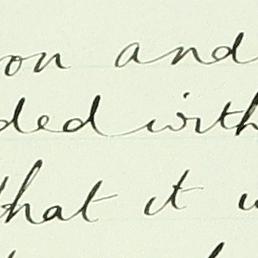 on and
ded with
that it